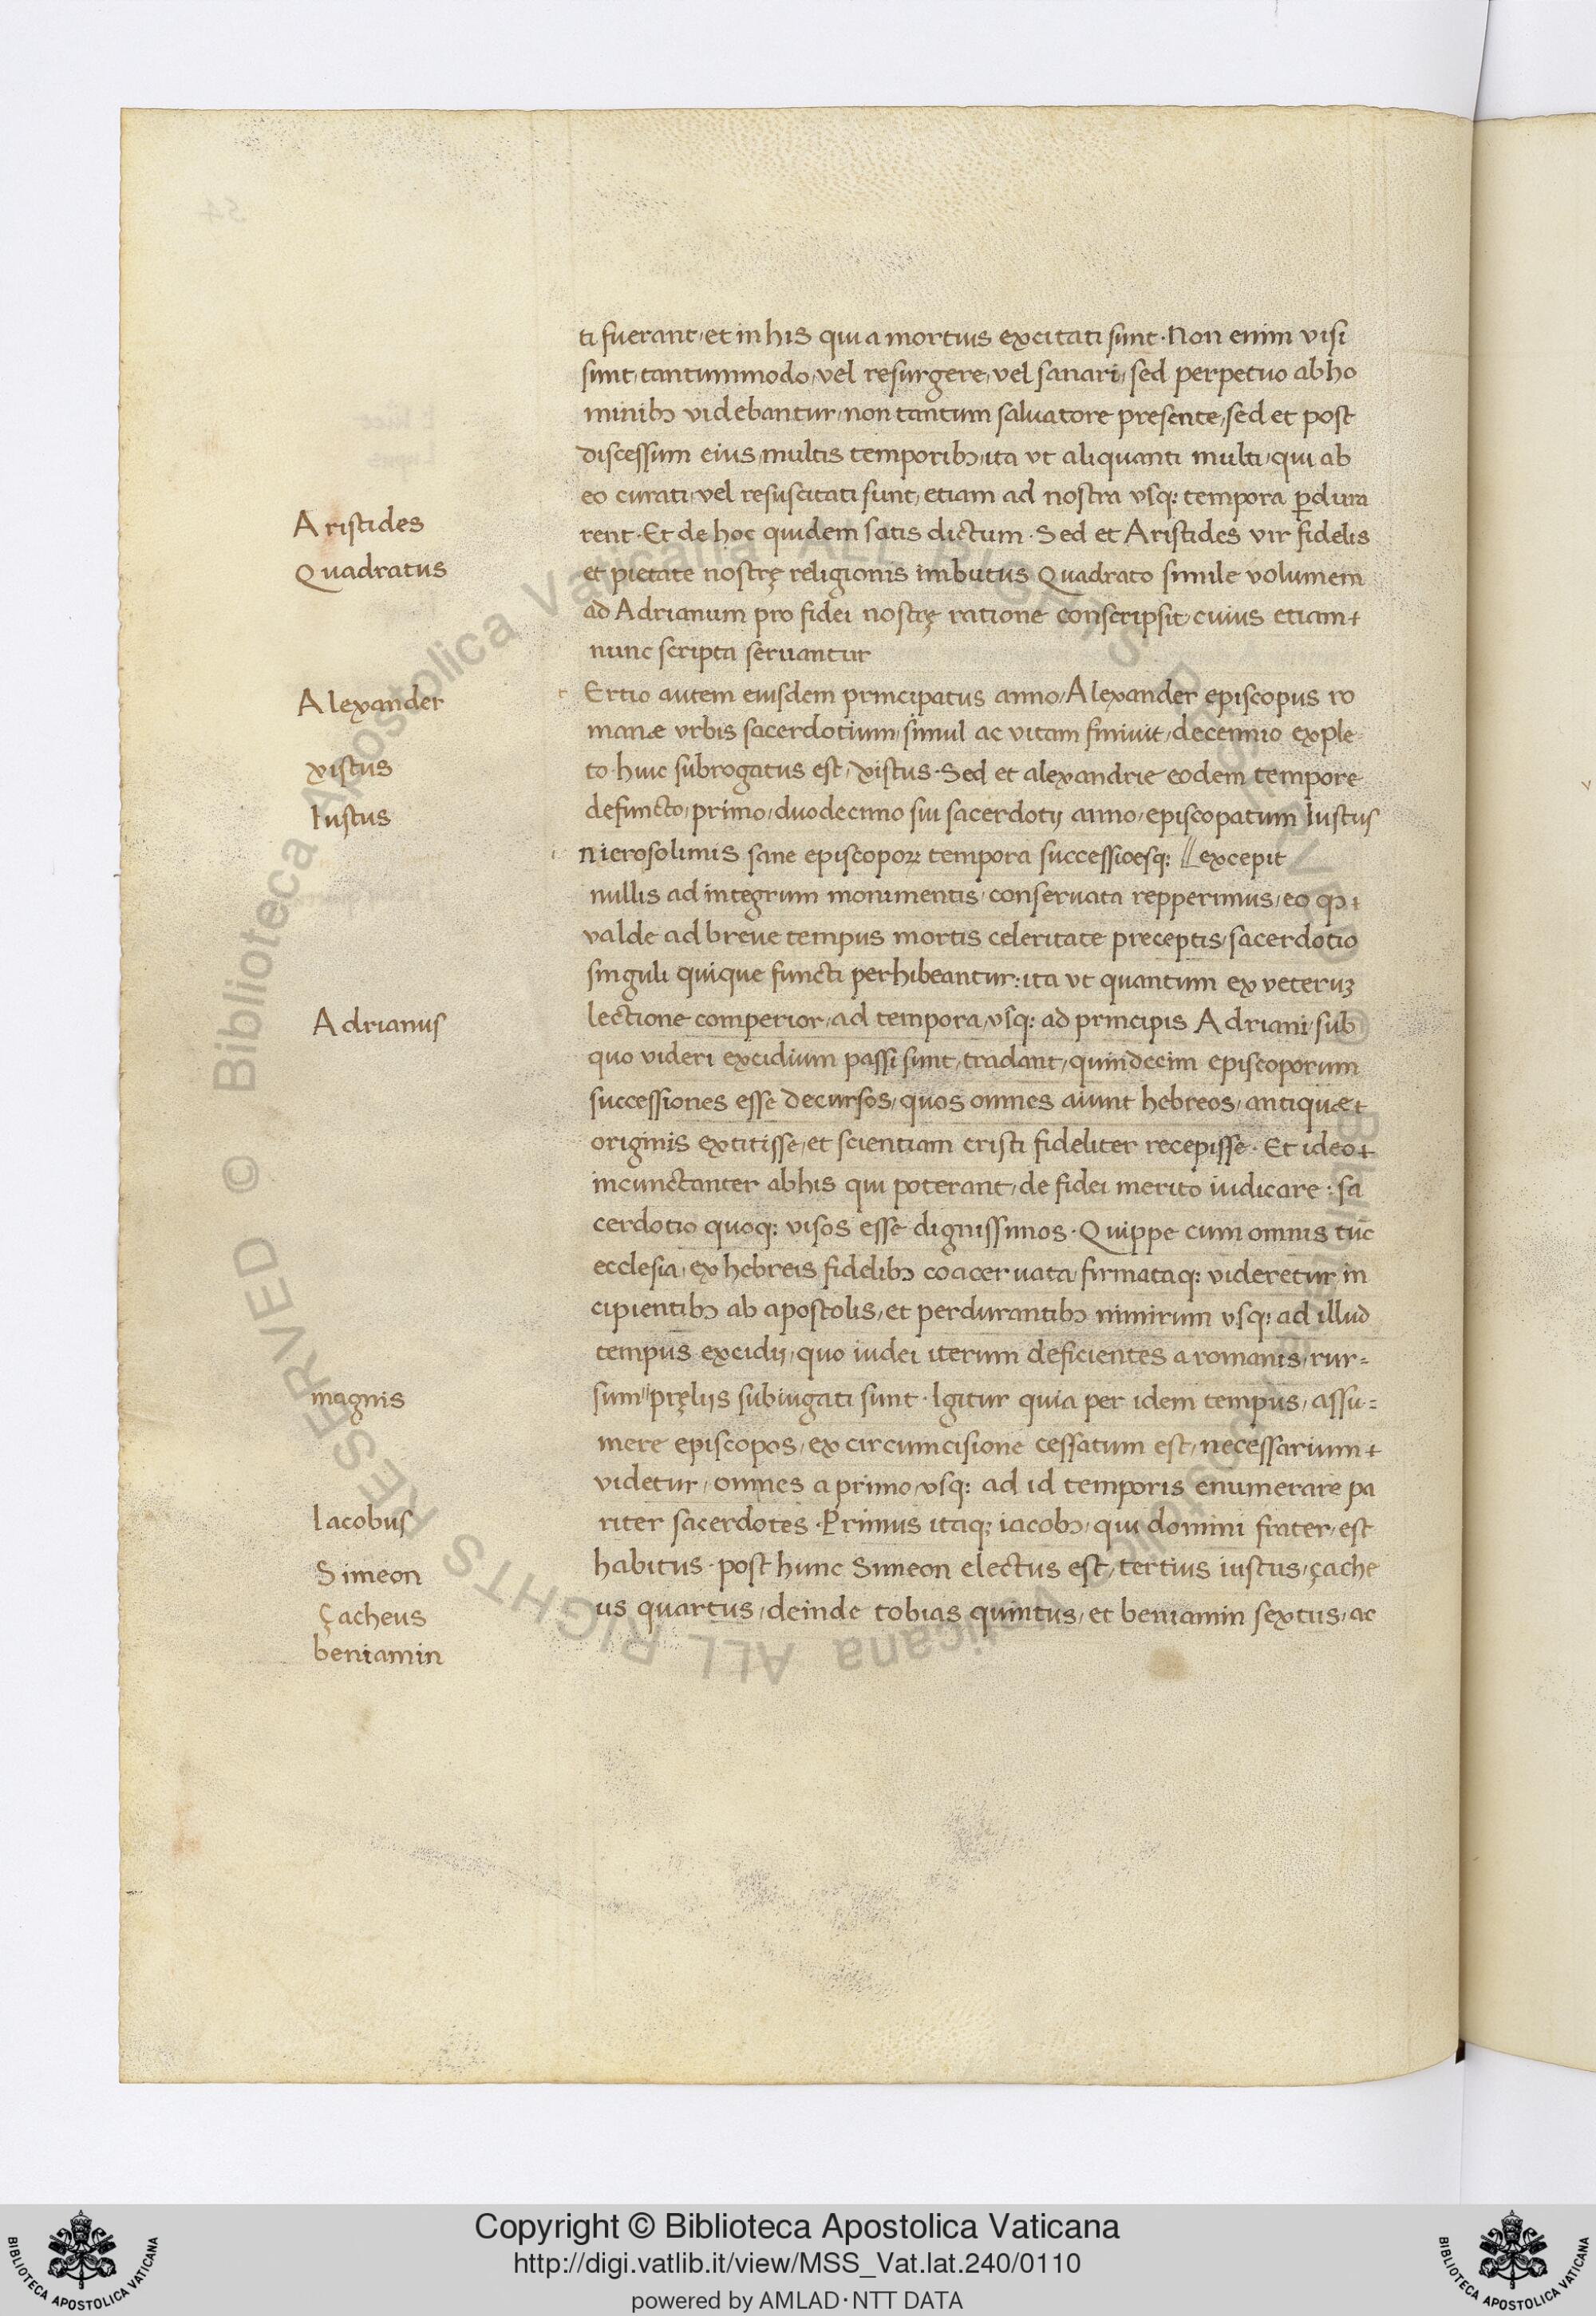 ti fuerant, et in his qui a mortuis excitati sunt. Non enim visi
sunt, tantummodo, vel resurgere, vel sanari, sed perpetuo ab ho
minibꝫ videbantur, non tantum saluatore presente, sed et post
discessum eius, multis temporibꝫ, ita vt aliquanti multi, qui ab
eo curati, vel resuscitati sunt, etiam ad nostra vsqꝫ tempora ꝑdura
Aristides
rent. Et de hoc quidem satis dictum. Sed et Aristides vir fidelis
Quadratus
et pietate nostrę religionis imbutus Quadrato simile volumem
ad Adrianum pro fidei nostrę ratione conscripsit, cuius etiam
nunc scripta seruantur
Alexander
t Ertio autem eiusdem principatus anno, Alexander episcopus ro
manæ vrbis sacerdotium, simul ac vitam finiuit, decennio exple
xistus
to. huic subrogatus est, xistus. Sed et alexandrie eodem tempore
Iustus
defuncto, primo, duodecimo sui sacerdotij anno, episcopatum Iustus
i nierosolimis sane episcopoꝝ tempora successioesqꝫ // excepit
nullis ad integrum monimentis, conseruata repperimus, eo qꝫ
valde ad breue tempus mortis celeritate preceptis, sacerdotio
singuli quique functi perhibeantur: ita vt quantum ex veteruꝫ
Adrianus
lectione comperior, ad tempora, vsqꝫ ad principis Adriani, sub
quo videri excidium passi sunt, tradant, quindecim episcoporum
successiones esse decursos, quos omnes aiunt hebreos, antiquæ
originis extitisse, et scientiam cristi fideliter recepisse. Et ideo
incunctanter ab his qui poterant, de fidei merito iudicare: sa
cerdotio quoqꝫ visos esse dignissimos. Quippe cum omnis tūc
ecclesia, ex hebreis fidelibꝫ coaceruata, firmataqꝫ videretur in
cipientibꝫ ab apostolis, et perdurantibꝫ nimirum vsqꝫ ad illud
tempus excidij, quo iudei iterum deficientes a romanis, rur=
magnis
sum" pręlijs subiugati sunt. Igitur quia per idem tempus, assu=
mere episcopos, ex circumcisione cessatum est, necessarium
videtur, omnes a primo, vsqꝫ ad id temporis enumerare pa
Iacobus
riter sacerdotes. Primus itaqꝫ iacobꝫ, qui domini frater, est
Simeon
habitus. post hunc Simeon electus est, tertius iustus, çache
çacheus
us quartus, deinde tobias quintus, et beniamin sextus, ac
beniamin
© Biblioteca Apostolica Vaticana ALL RIGHTS RESERVED
© Biblioteca Apostolica Vaticana ALL RIGHTS RESERVED
Copyright © Biblioteca Apostolica Vaticana
http://digi.vatlib.it/view/MSS_Vat.lat.240/0110
powered by AMLAD·NTT DATA
BIBLIOTECA APOSTOLICA VATICANA
BIBLIOTECA APOSTOLICA VATICANA